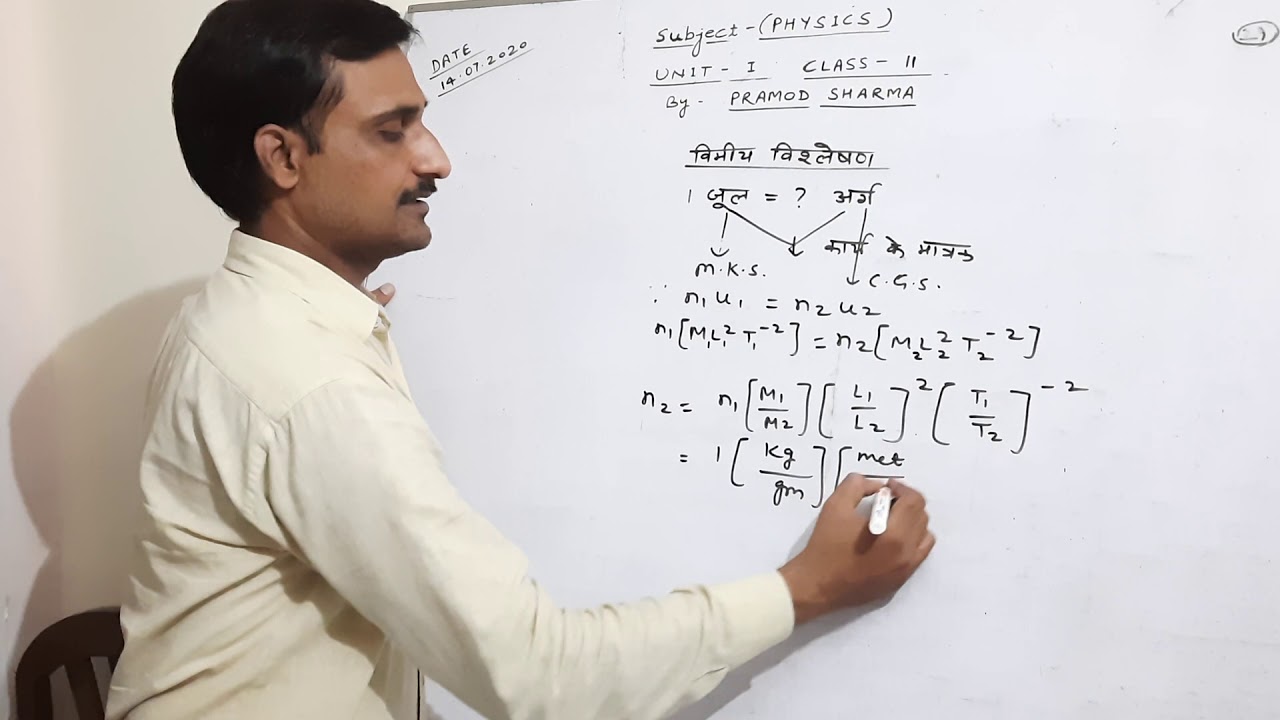 DATE
14.07.2020
Subject - (PHYSICS)
UNIT - I CLASS - 11
By - PRAMOD SHARMA
विमीय विश्लेषण
1 जूल = ? अर्ग
कार्य के मात्रक
M.K.S.
C.G.S.
∵ n₁u₁ = n₂u₂
n₁[M₁L₁²T₁⁻²] = n₂[M₂L₂²T₂⁻²]
n₂ = n₁[M₁/M₂][L₁/L₂]²[T₁/T₂]⁻²
= 1[Kg/gm][met